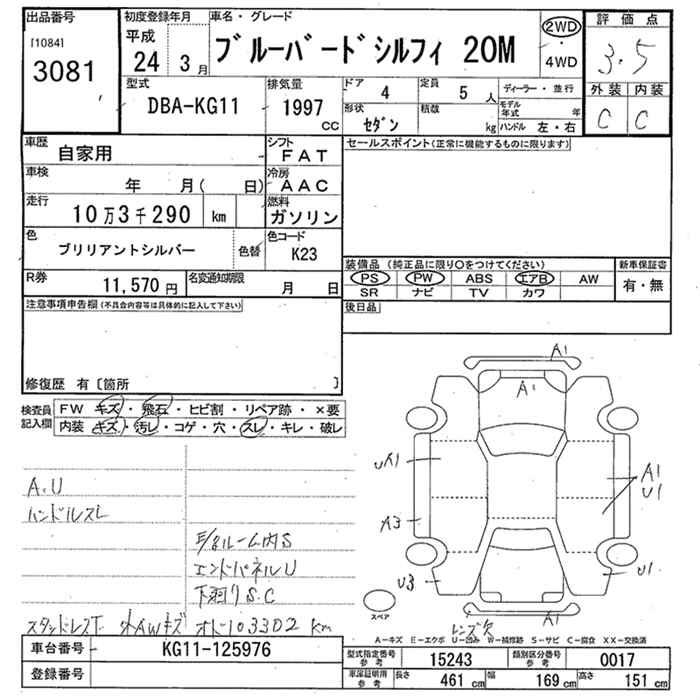 出品番号
[1084]
3081
初度登録年月
平成
24 3月
車名・グレード
ブルーバードシルフィ 20M
2WD
・
4WD
評価点
3.5
外装 内装
C C
型式
DBA-KG11
排気量
1997
CC
ドア 4
定員 5 人
形状 セダン
積数 kg
ディーラー・並行
モデル年式 年
ハンドル 左・右
車歴
自家用
シフト
FAT
車検
年 月( 日)
冷房
AAC
走行
10万3千290 km
燃料
ガソリン
色
ブリリアントシルバー
色替
色コード
K23
R券
11,570 円
名変通知期限
月 日
セールスポイント(正常に機能するものに限ります)
装備品(純正品に限り○をつけてください)
PS PW ABS エアB AW
SR ナビ TV カワ
新車保証書
有・無
後日品
注意事項申告欄(不具合内容等は具体的に記入して下さい)
修復歴 有〔箇所 〕
検査員
記入欄
FW キズ・飛石・ヒビ割・リペア跡・×要
内装 キズ・汚レ・コゲ・穴・スレ・キレ・破レ
A.U
ハンドルスレ
ルーム内S
エンドパネルU
下廻りS.C
外AWキズ
103302 km
A1
A1
UA1
A1
U1
A3
U3
U1
A1
レンズ欠
スペア
A-キズ E-エクボ U-凹み W-補修跡 S-サビ C-腐食 XX-交換済
車台番号
KG11-125976
登録番号
型式指定番号
参考
15243
類別区分番号
参考
0017
車庫証明用
参考
長さ 461 cm
幅 169 cm
高さ 151 cm